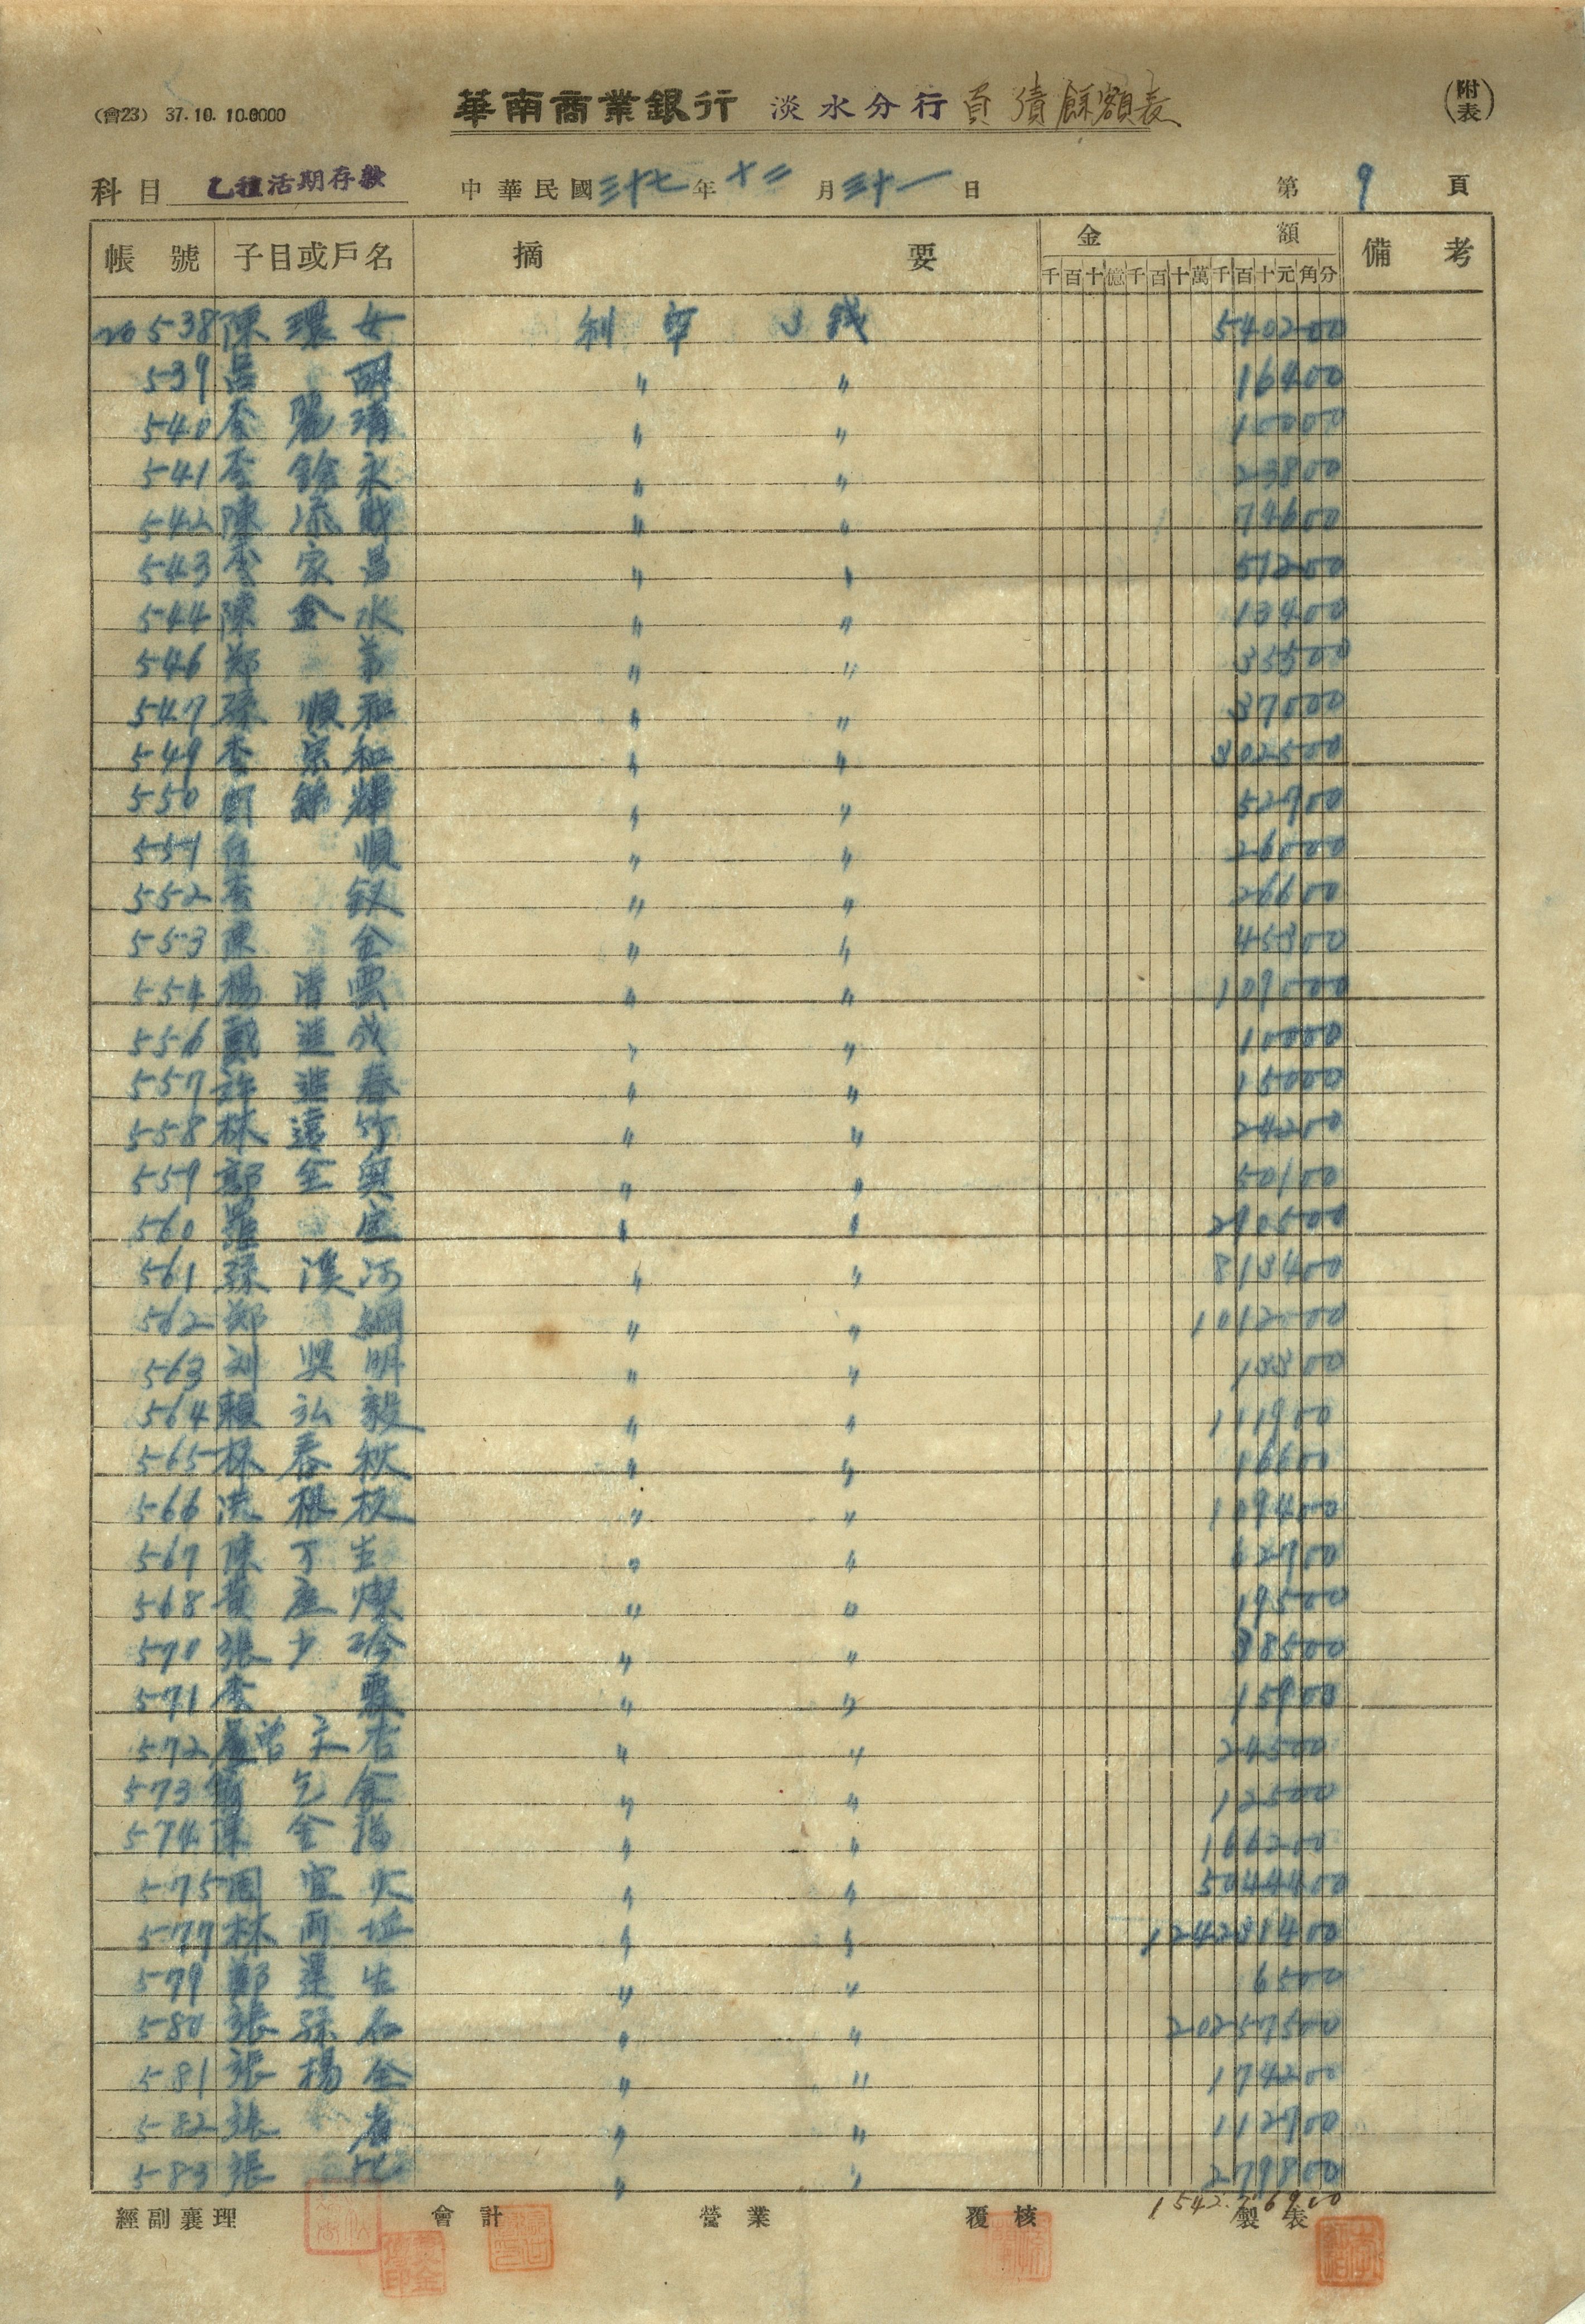 (會23) 37.10. 10.0000
華南商業銀行 淡水分行 負債餘額表
(附表)
科目 乙種活期存款 中華民國三十七年十二月三十一日 第9頁
帳號 子目或戶名 摘要 金額 備考
千百十億千百十萬千百十元角分
20538 陳環女 利率 3錢 540200
539 呂 〃 〃 16400
540 李麗 〃 〃 10000
541 李 永 〃 〃 23800
542 陳添財 〃 〃 74600
543 李家昌 〃 〃 51200
544 陳金水 〃 〃 13400
546 鄭 〃 〃 35500
547 孫順和 〃 〃 37000
549 李宗和 〃 〃 302500
550 輝 〃 〃 52900
551 順 〃 〃 26000
552 李 〃 〃 26600
553 陳金 〃 〃 45300
554 楊清雲 〃 〃 109000
556 戴進成 〃 〃 10000
557 許進春 〃 〃 15000
558 林遠竹 〃 〃 24200
559 郭金 〃 〃 50100
560 羅 〃 〃 290500
561 孫漢河 〃 〃 813400
562 鄭 〃 〃 1012000
563 劉 明 〃 〃 13300
564 賴弘毅 〃 〃 111900
565 林春秋 〃 〃 16600
566 洪根枝 〃 〃 109400
567 陳丁生 〃 〃 62900
568 黃 燦 〃 〃 19500
570 張少玲 〃 〃 38500
571 李 〃 〃 15900
572 曾 〃 〃 24500
573 〃 〃 12500
574 陳金 〃 〃 166200
575 周宜 〃 〃 5044400
577 林雨 〃 〃 124231400
579 鄭 生 〃 〃 6500
580 張孫 〃 〃 20257500
581 張楊金 〃 〃 174200
582 張 〃 〃 112900
583 張 〃 〃 279800
1542.76900
經副襄理 會計 營業 覆核 製表